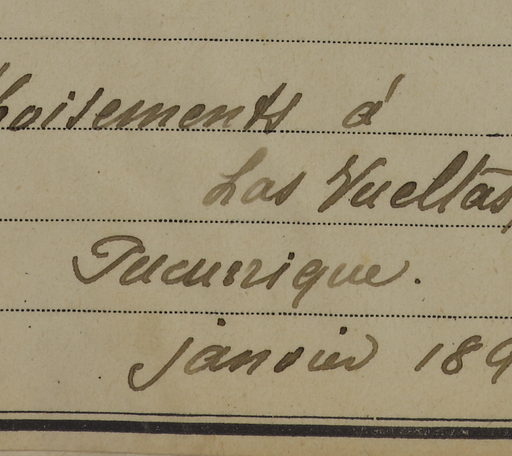 hoisements á
Las Vueltas,
Tucurrique.
janvier 189